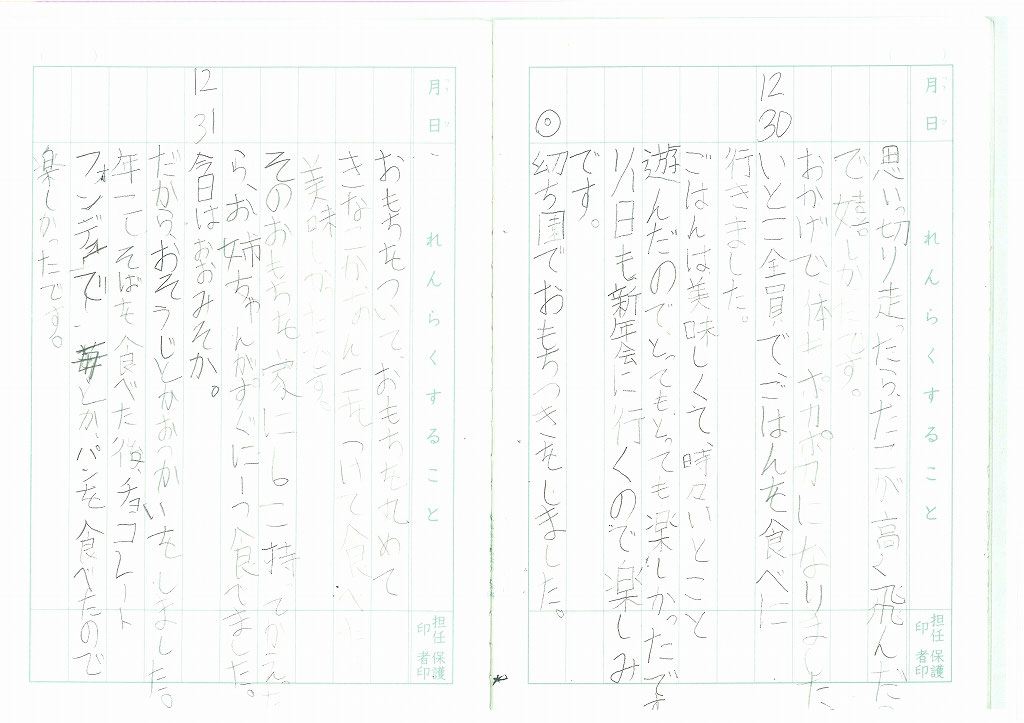 月日
れんらくすること
担任印
保護者印
思い切り走ったら、たこが高く飛んだ
で嬉しかったです。
おかげで、体もポカポカになりました
12 30
いとこ全員でごはんを食べに
行きました。
ごはんは美味しくて、時々いとこと
遊んだので、とっても、とっても楽しかったです
1/1日も新年会に行くので楽しみ
です。
◎
幼ち国でおもちつきをしました。
月日
れんらくすること
担任印
保護者印
おもちをついて、おもちを丸めて
きなこかあんこをつけて食べた
美味しかったです。
そのおもちを家に6こ持ってかえった
ら、お姉ちゃんがすぐに一つ食てました。
12 31
今日はおおみそか。
だから、おそうじとかおつかいをしました。
年こしそばを食べた後、チョコレート
フォンデュで、苺とか、パンを食べたので
楽しかったです。